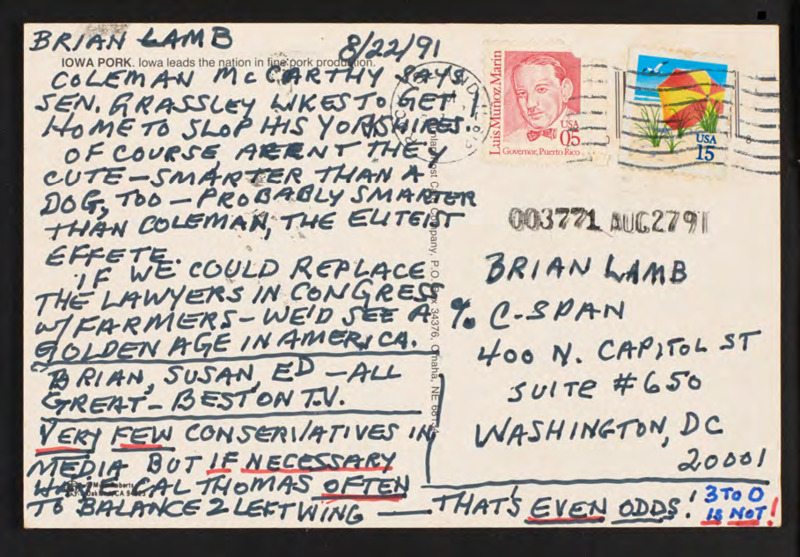 BRIAN LAMB 8/22/91
IOWA PORK. Iowa leads the nation in fine pork production.
COLEMAN McCARTHY SAYS
SEN. GRASSLEY LIKES TO GET
HOME TO SLOP HIS YORKSHIRES.
OF COURSE ARENT THEY
CUTE—SMARTER THAN A
DOG, TOO—PROBABLY SMARTER
THAN COLEMAN, THE ELITEIST
EFFETE.
IF WE COULD REPLACE
THE LAWYERS IN CONGRESS
W/FARMERS—WE'D SEE A
GOLDEN AGE IN AMERICA.
BRIAN, SUSAN, ED—ALL
GREAT—BEST ON T.V.
VERY FEW CONSERVATIVES IN
MEDIA BUT IF NECESSARY
CAL THOMAS OFTEN
TO BALANCE 2 LEFTWING — THAT'S EVEN ODDS! 3 TO 0
IS NOT!
Company, P.O. Box 34376, Omaha, NE
Luis Muñoz Marin
USA
05
Governor, Puerto Rico
USA
15
003771 AUG 27 91
BRIAN LAMB
% C-SPAN
400 N. CAPITOL ST
SUITE #650
WASHINGTON, DC
20001